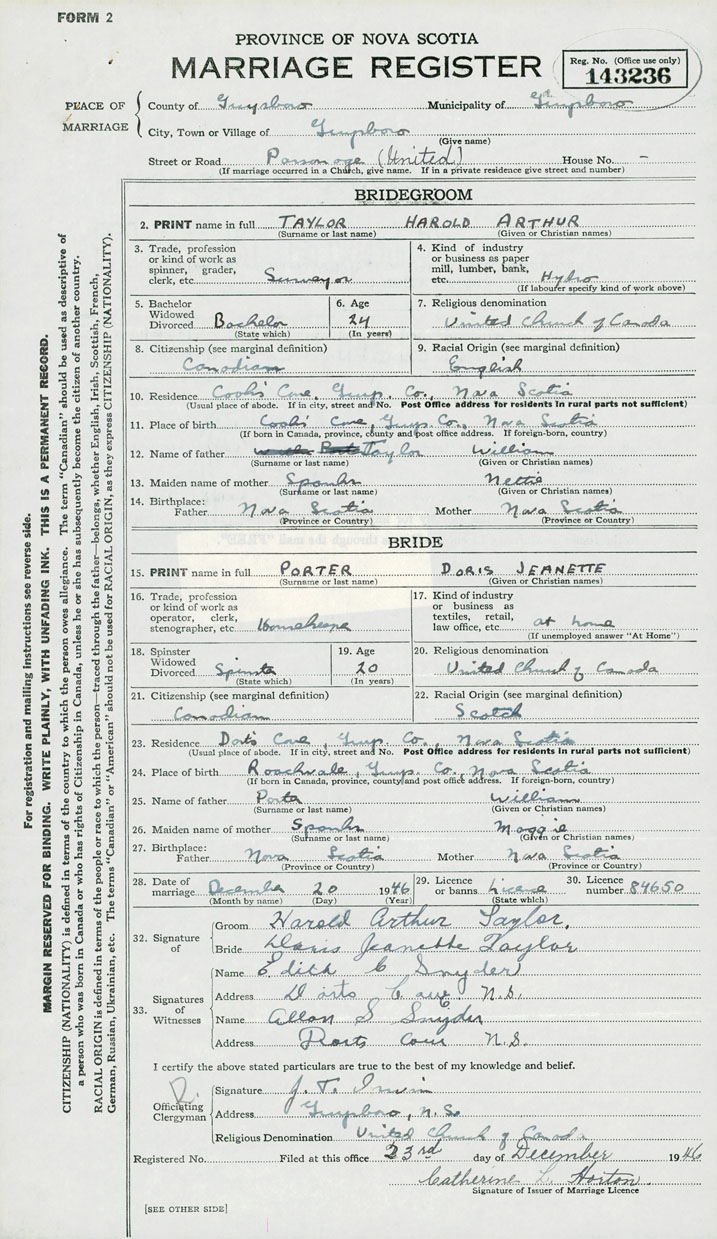 FORM 2
PROVINCE OF NOVA SCOTIA
MARRIAGE REGISTER
Reg. No. (Office use only)
143236
PLACE OF MARRIAGE
County of Guysboro Municipality of Guysboro
City, Town or Village of Guysboro
(Give name)
Street or Road Parsonage (United) House No. -
(If marriage occurred in a Church, give name. If in a private residence give street and number)
BRIDEGROOM
2. PRINT name in full TAYLOR HAROLD ARTHUR
(Surname or last name) (Given or Christian names)
3. Trade, profession or kind of work as spinner, grader, clerk, etc. Surveyor
4. Kind of industry or business as paper mill, lumber, bank, etc. Hydro
(If labourer specify kind of work above)
5. Bachelor Widowed Divorced Bachelor
(State which)
6. Age 24
(In years)
7. Religious denomination
United Church of Canada
8. Citizenship (see marginal definition)
Canadian
9. Racial Origin (see marginal definition)
English
10. Residence Cook's Cove, Guys. Co., Nova Scotia
(Usual place of abode. If in city, street and No. Post Office address for residents in rural parts not sufficient)
11. Place of birth Cook's Cove, Guys. Co., Nova Scotia
(If born in Canada, province, county and post office address. If foreign-born, country)
12. Name of father Taylor William
(Surname or last name) (Given or Christian names)
13. Maiden name of mother Spanks Nettie
(Surname or last name) (Given or Christian names)
14. Birthplace: Father Nova Scotia Mother Nova Scotia
(Province or Country) (Province or Country)
BRIDE
15. PRINT name in full PORTER DORIS JEANETTE
(Surname or last name) (Given or Christian names)
16. Trade, profession or kind of work as operator, clerk, stenographer, etc.
17. Kind of industry or business as textiles, retail, law office, etc. at home
(If unemployed answer "At Home")
18. Spinster Widowed Divorced Spinster
(State which)
19. Age 20
(In years)
20. Religious denomination
United Church of Canada
21. Citizenship (see marginal definition)
Canadian
22. Racial Origin (see marginal definition)
Scotch
23. Residence Dort's Cove, Guys. Co., Nova Scotia
(Usual place of abode. If in city, street and No. Post Office address for residents in rural parts not sufficient)
24. Place of birth Roachvale, Guys. Co. Nova Scotia
(If born in Canada, province, county and post office address. If foreign-born, country)
25. Name of father Porter William
(Surname or last name) (Given or Christian names)
26. Maiden name of mother Spanks Maggie
(Surname or last name) (Given or Christian names)
27. Birthplace: Father Nova Scotia Mother Nova Scotia
(Province or Country) (Province or Country)
28. Date of marriage December 20 1946
(Month by name) (Day) (Year)
29. Licence or banns License
(State which)
30. Licence number 84650
32. Signature of
Groom Harold Arthur Taylor.
Bride Doris Jeanette Taylor
33. Signatures of Witnesses
Name Edith C Snyder
Address Dorts Cove N.S.
Name Allan S Snyder
Address Dorts Cove N.S.
I certify the above stated particulars are true to the best of my knowledge and belief.
Officiating Clergyman
Signature J. T. Irwin
Address Guysboro, N.S.
Religious Denomination United Church of Canada
Registered No. Filed at this office 23rd day of December 1946
Catherine L. Horton
Signature of Issuer of Marriage Licence
[SEE OTHER SIDE]
For registration and mailing instructions see reverse side.
MARGIN RESERVED FOR BINDING. WRITE PLAINLY, WITH UNFADING INK. THIS IS A PERMANENT RECORD.
CITIZENSHIP (NATIONALITY) is defined in terms of the country to which the person owes allegiance. The term "Canadian" should be used as descriptive of
a person who was born in Canada or who has rights of Citizenship in Canada, unless he or she has subsequently become the citizen of another country.
RACIAL ORIGIN is defined in terms of the people or race to which the person—traced through the father—belongs, whether English, Irish, Scottish, French,
German, Russian, Ukrainian, etc. The terms "Canadian" or "American" should not be used for RACIAL ORIGIN, as they express CITIZENSHIP (NATIONALITY).